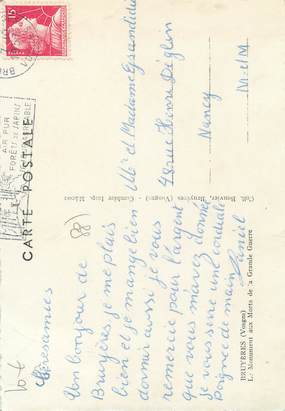 15F
BRU
VOSGES
AIR PUR
FORÊTS DE SAPINS
CARTE POSTALE
Coll. Bouvier, Bruyères (Vosges) Combier Imp. Mâcon
(88)
Chers amis
Un bonjour de
Bruyères, je me plais
bien et je mange bien
dormir aussi je vous
remercie pour l'argent
que vous m'avez donné
je vous serre une cordiale
Poignée de main Daniel
Mr et Madame
48 rue Henri Déglin
Nancy
M et M
BRUYÈRES (Vosges)
L. Monument aux Morts de la Grande Guerre